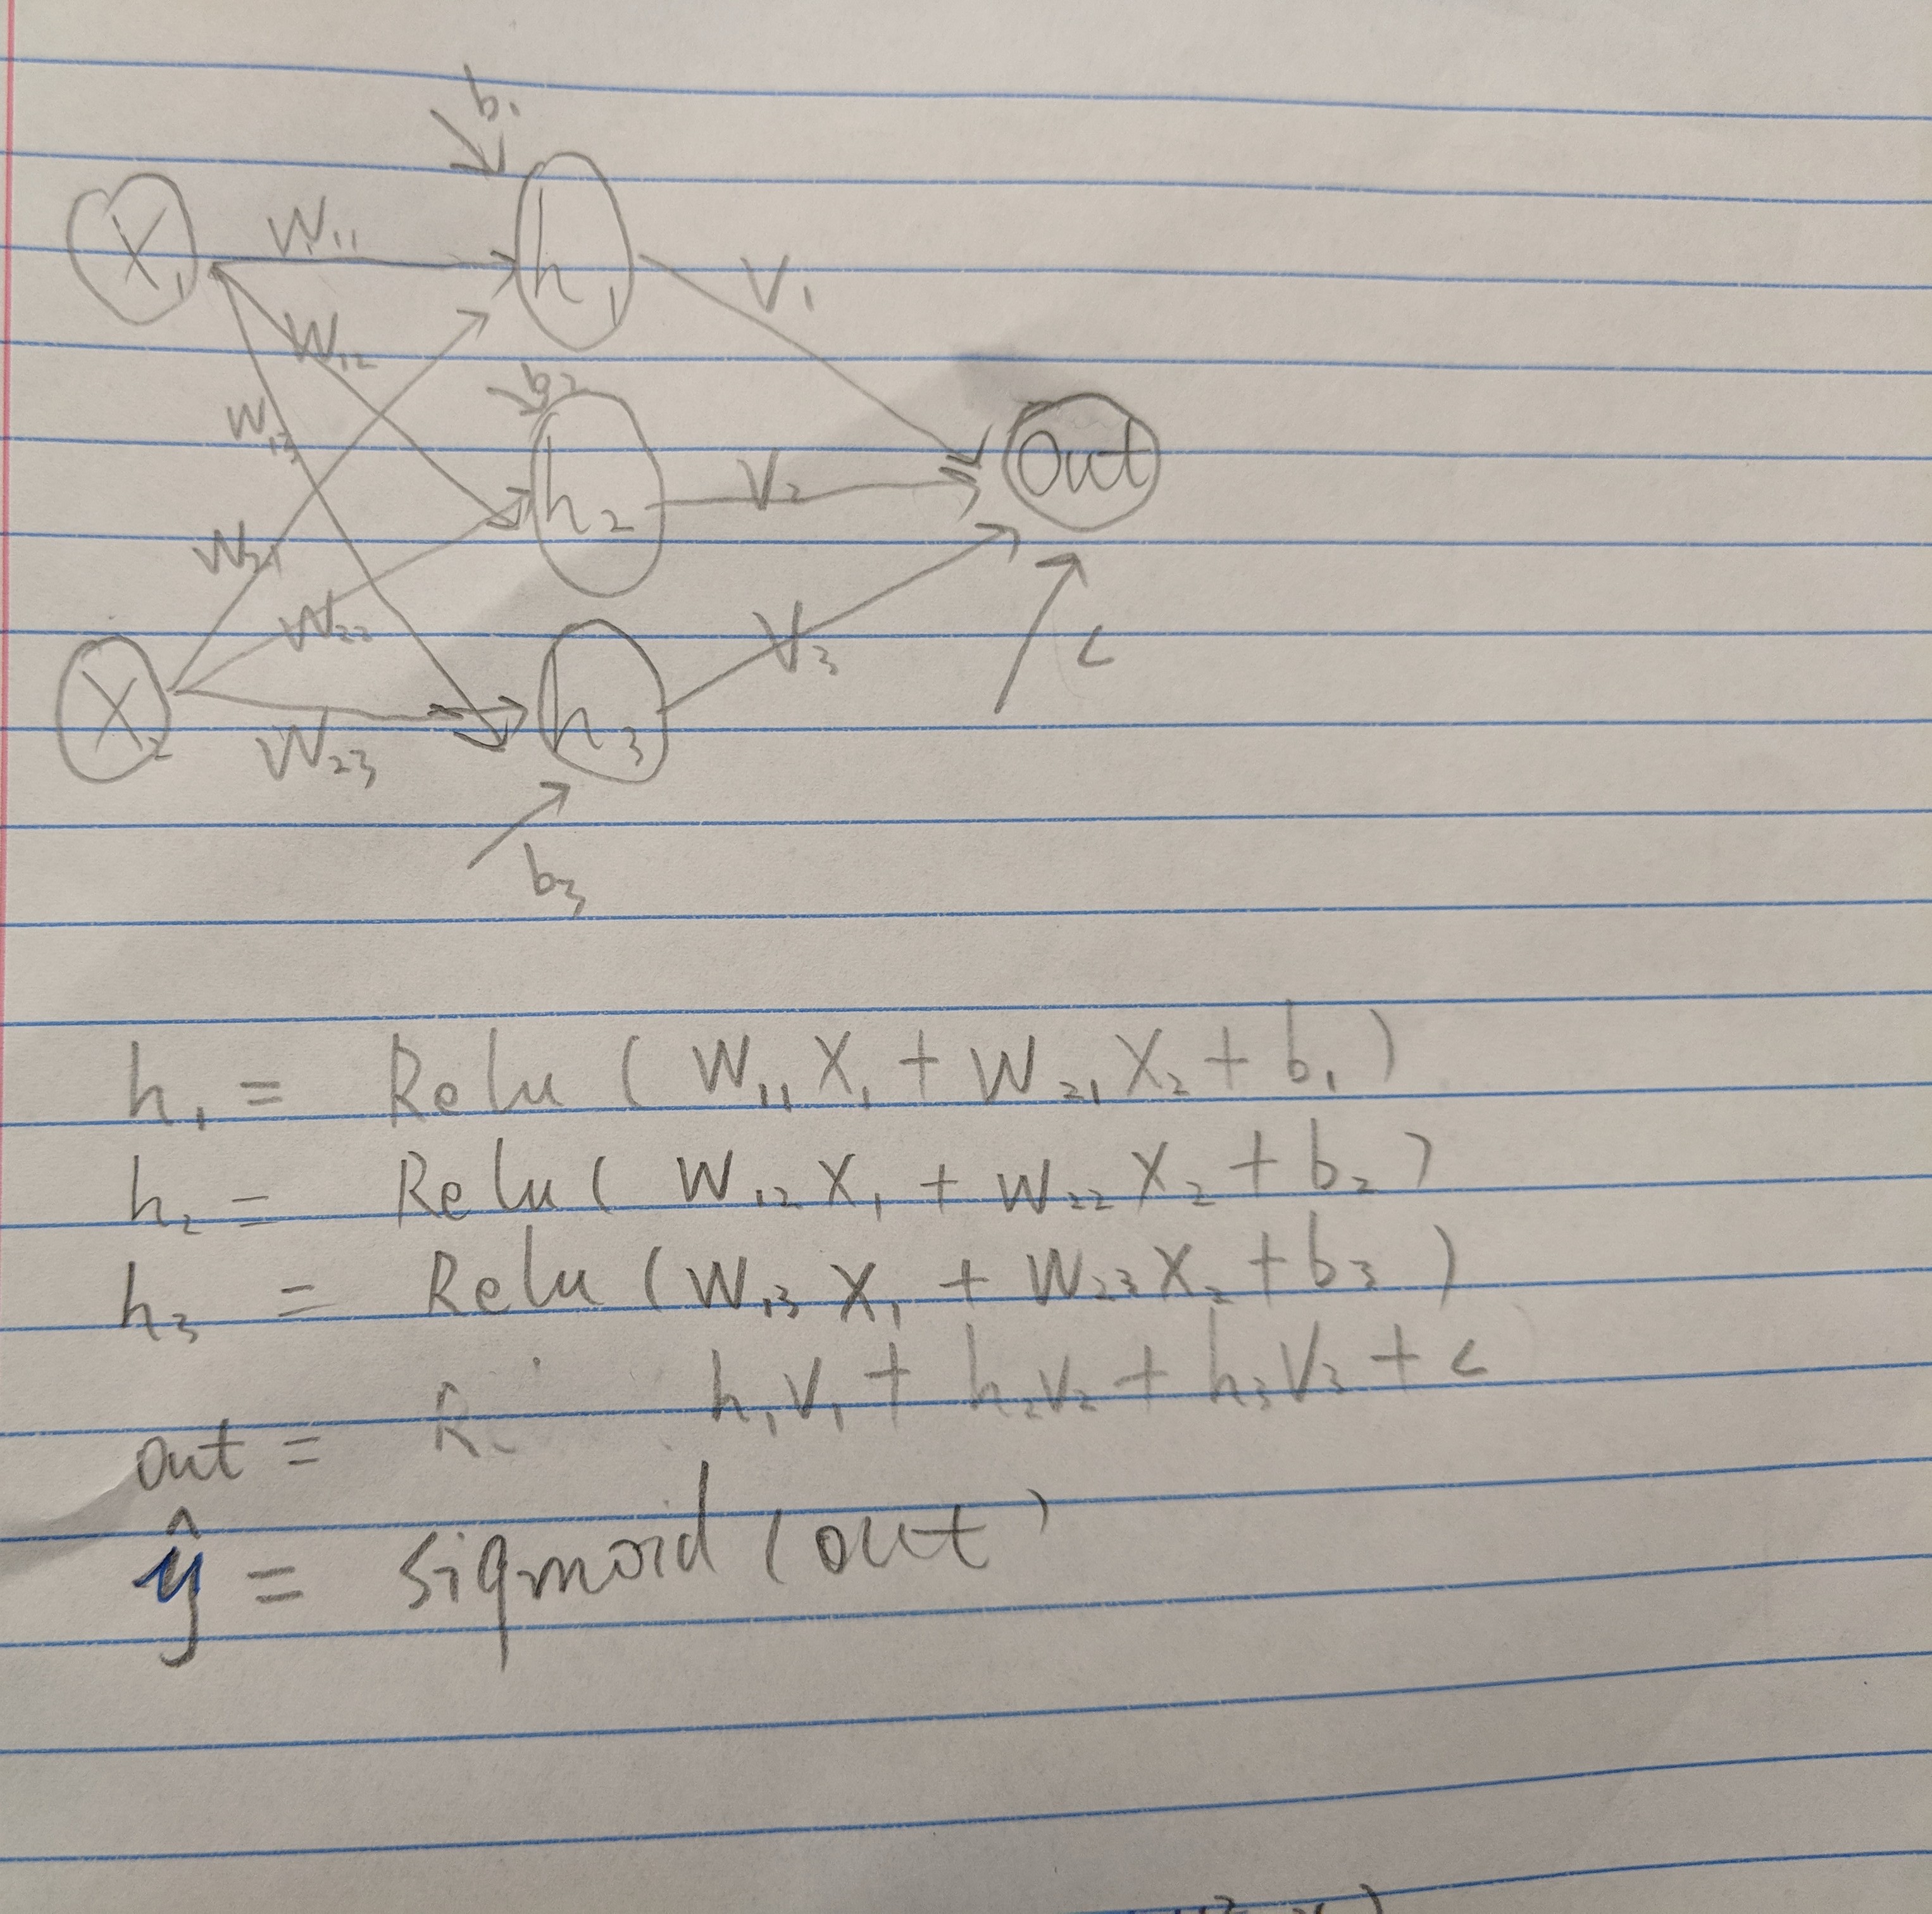 b₁
X₁ W₁₁ h₁ V₁
W₁₂
b₂
W₁₃
h₂ V₂ Out
W₂₁
W₂₂
V₃ c
X₂ W₂₃ h₃
b₃
h₁ = Relu ( W₁₁ X₁ + W₂₁ X₂ + b₁ )
h₂ = Relu ( W₁₂ X₁ + W₂₂ X₂ + b₂ )
h₃ = Relu ( W₁₃ X₁ + W₂₃ X₂ + b₃ )
out = h₁V₁ + h₂V₂ + h₃V₃ + c
ŷ = sigmoid (out)